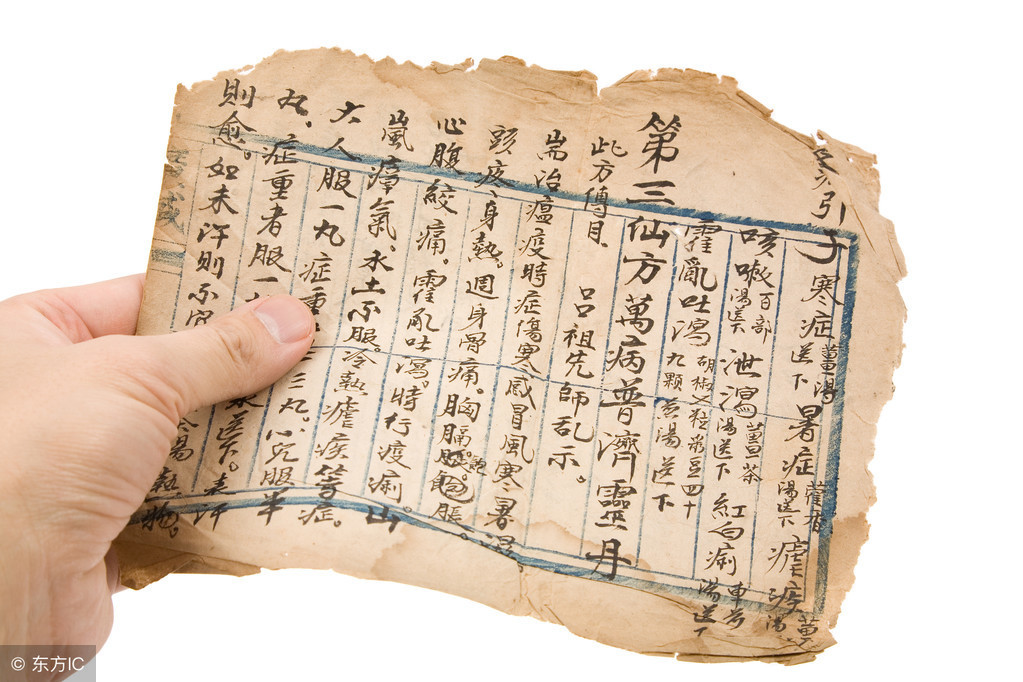 引子 寒症薑湯送下 暑症藿香湯送下 瘧疾
咳嗽百部湯送下 泄瀉薑茶湯送下 紅白痢車前湯送下
霍亂吐瀉胡椒 粒菉豆四十九顆 湯送下
第三仙方萬病普濟靈丹
此方傳自 呂祖先師乩示。
耑治瘟疫時症傷寒感冒風寒暑濕
頭疼身熱。週身骨痛。胸膈 飽脹。
心腹絞痛。霍亂吐瀉。時行疫痢。山
嵐瘴氣。水土不服。冷熱瘧疾等症。
大人服一丸 症重 三丸。小兒服半
丸、症重者服一丸 送下。未汗
則愈。如未汗則不 熱物。
© 东方IC